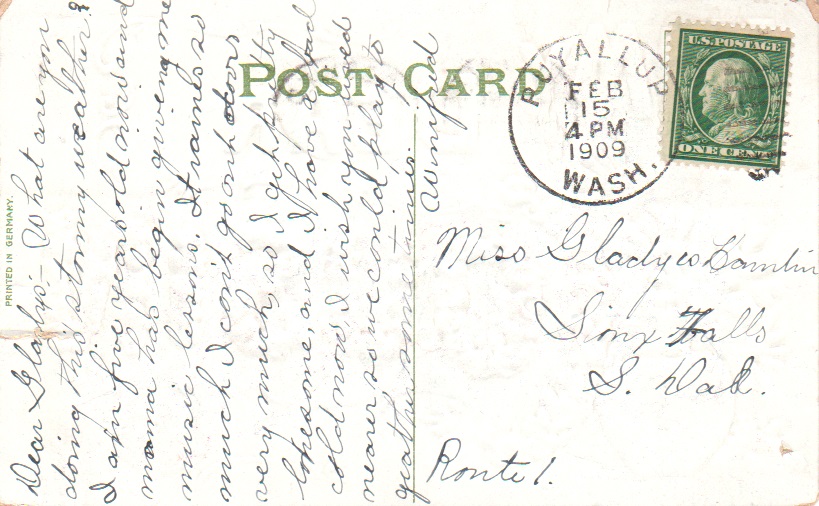 POST CARD
PUYALLUP
FEB
15
4 PM
1909
WASH.
U.S. POSTAGE
ONE CENT
PRINTED IN GERMANY.
Dear Gladys:- What are you
doing this stormy weather?
I am five years old now and
mama has begin giving me
music lessons. It raines so
much I can't go outdoors
very much, so I get pretty
lonesome, and I have a bad
cold now, I wish you lived
nearer so we could play to
geather some times.
Winifred
Miss Gladys
Sioux Falls
S. Dak.
Route 1.